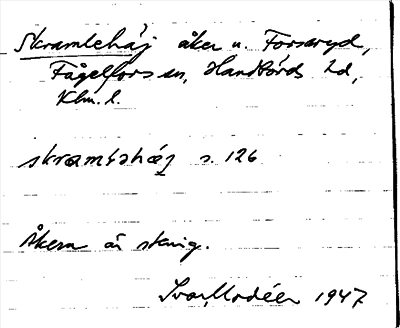 Skramlehäj åker u. Forsaryd,
Fågelfors sn, Handbörds hd,
Klm. l.
skramləhäj s. 126
Åkern är stenig.
Ivar Modéer 1947